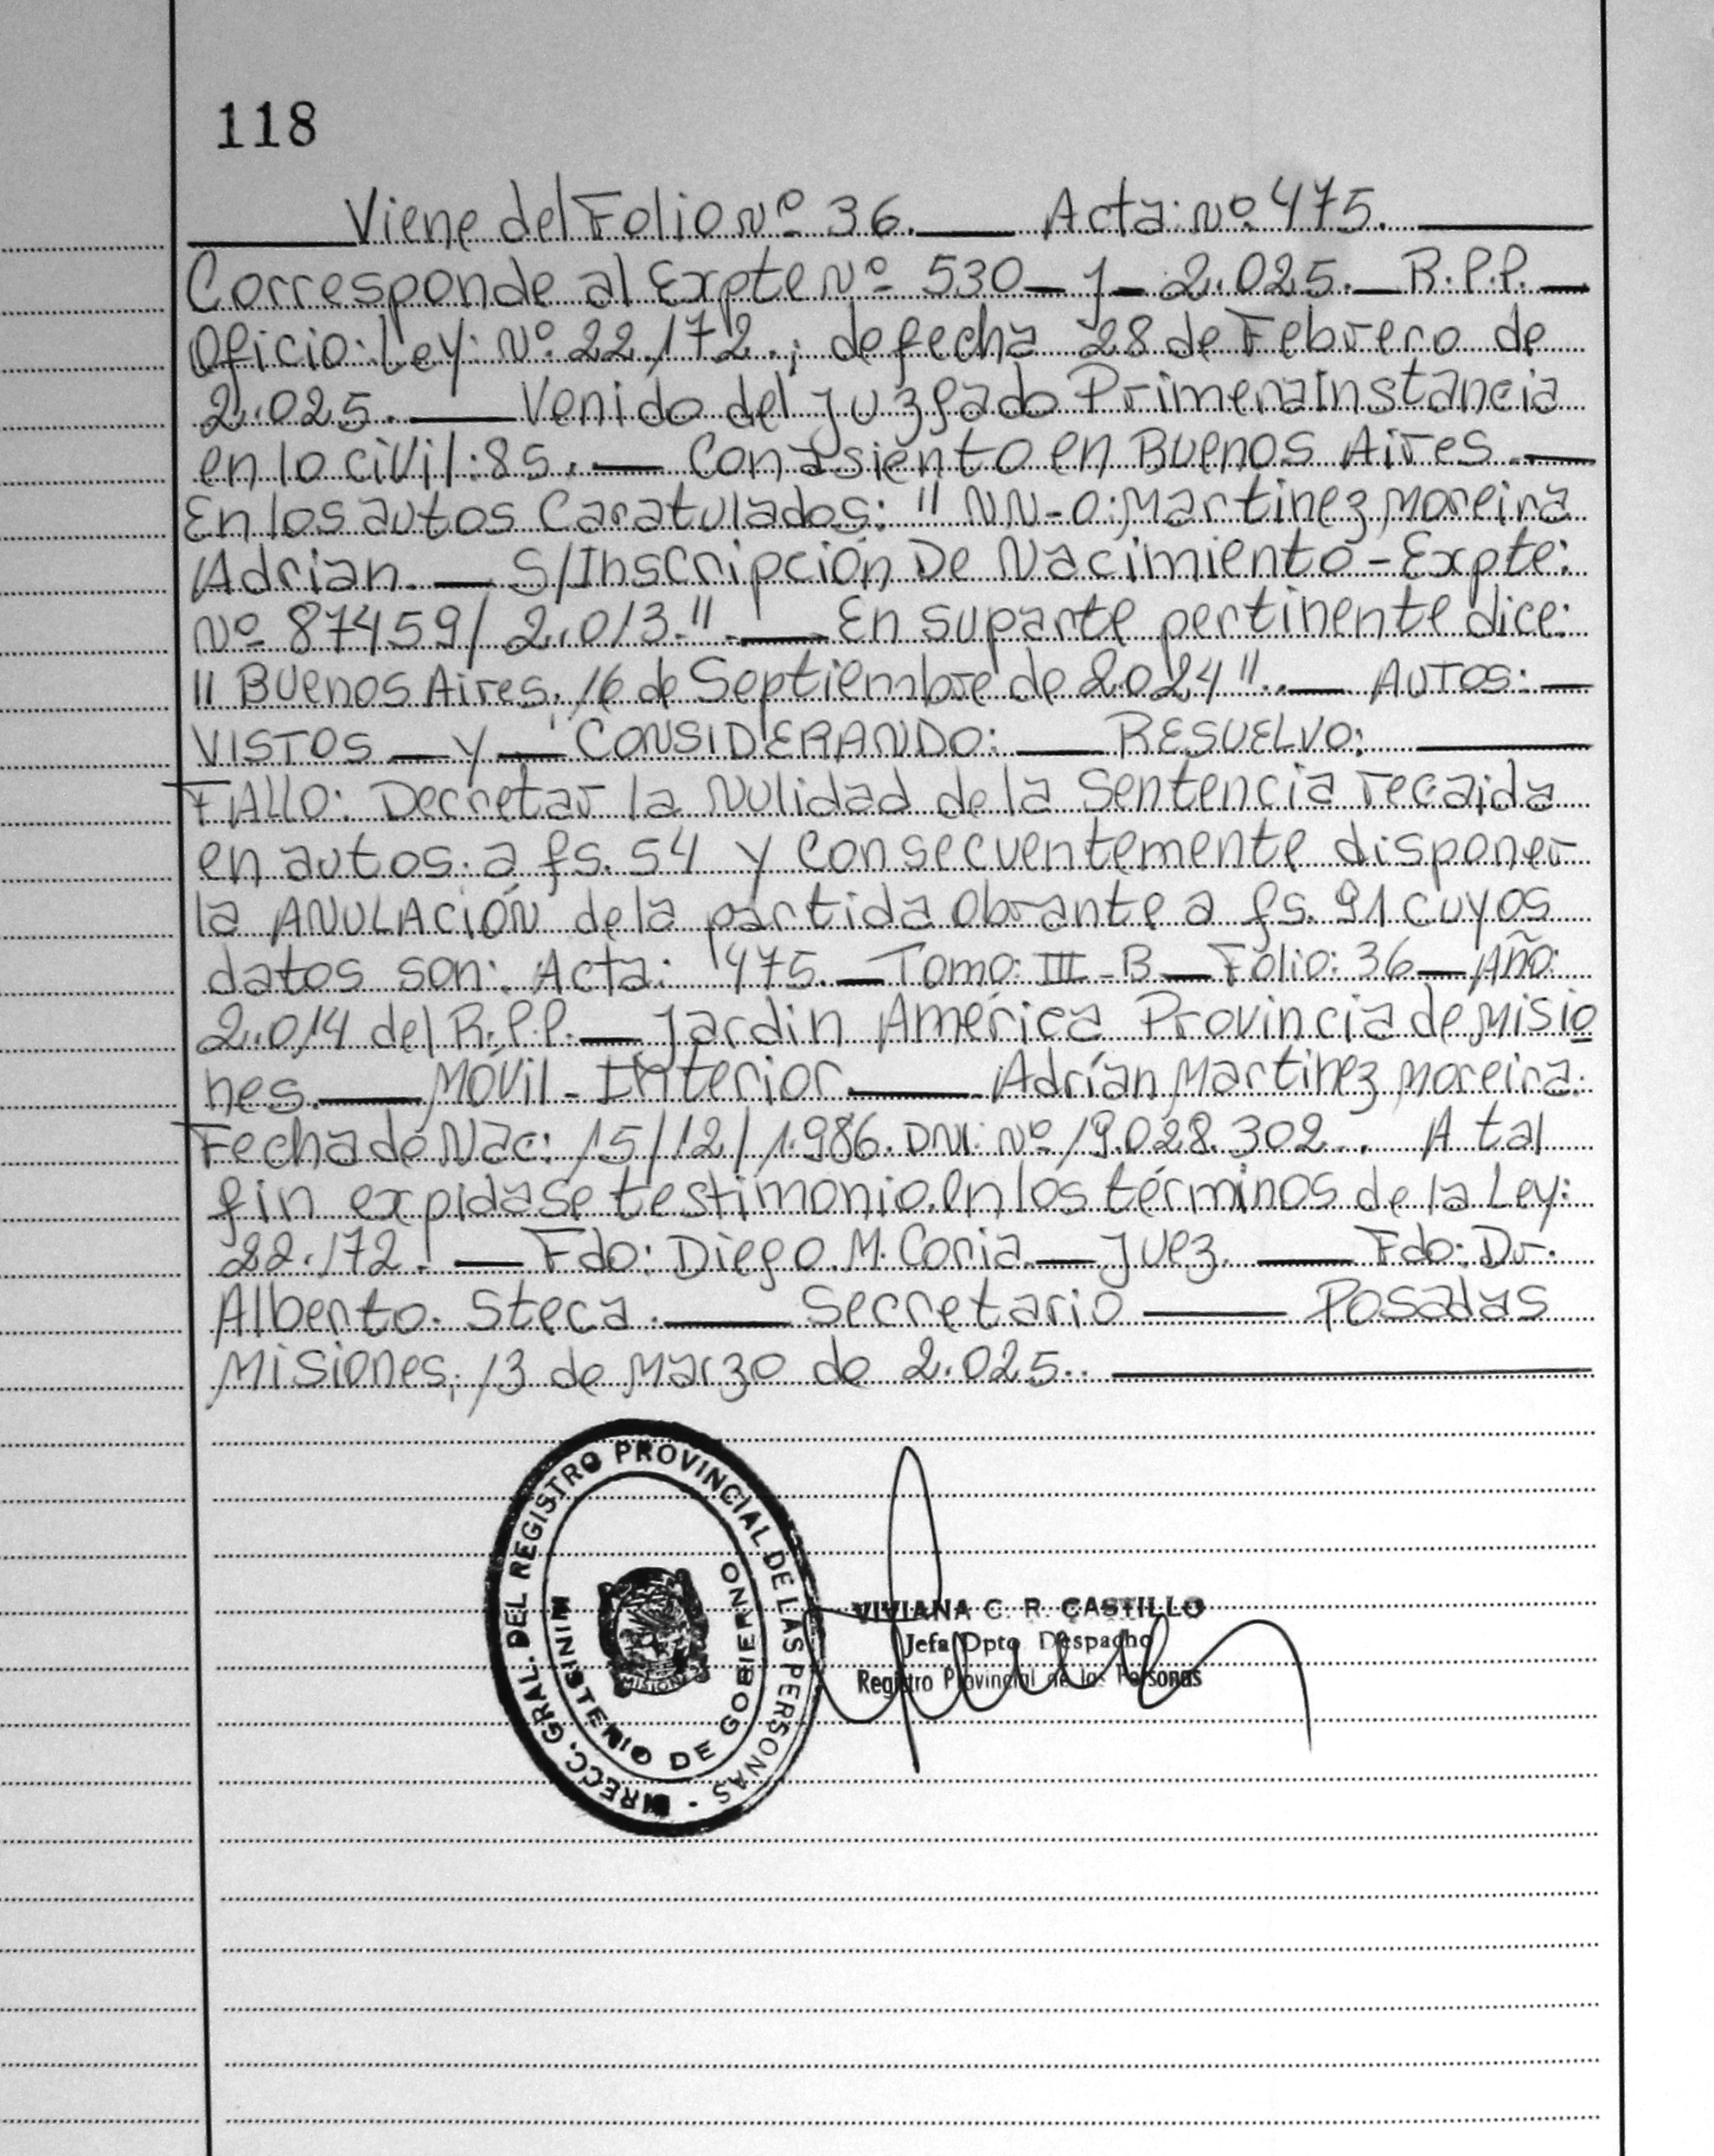 118
Viene del Folio Nº 36. — Acta: Nº 475. —
Corresponde al Expte Nº 530 — J — 2.025. — R.P.P. —
Oficio: Ley: Nº 22.172.; de fecha 28 de Febrero de
2.025. — Venido del Juzgado Primera Instancia
en lo civil: 85. — Con asiento en Buenos Aires. —
En los autos Caratulados: " NN-O: Martinez Moreira
Adrian. — S/Inscripción De Nacimiento - Expte:
Nº 87459/2.013." — En su parte pertinente dice:
" Buenos Aires, 16 de Septiembre de 2.024". — AUTOS: —
VISTOS — Y — CONSIDERANDO: — RESUELVO: —
FALLO: Decretar la Nulidad de la Sentencia recaida
en autos a fs. 54 y consecuentemente disponer
la ANULACIÓN de la partida obrante a fs. 91 cuyos
datos son: Acta: 475. — Tomo: III - B — Folio: 36 — Año:
2.014 del R.P.P. — Jardin América Provincia de Misio
nes. — MÓVil - Interior. — Adrían Martinez Moreira.
Fecha de Nac: 15/12/1.986. DNI: Nº 19.028.302.. A tal
fin expidase testimonio en los términos de la Ley:
22.172. — Fdo: Diego. M. Coria — Juez. — Fdo: Dr.
Alberto. Steca. — Secretario — Posadas
Misiones, 13 de Marzo de 2.025.. —
DIRECC. GRAL. DEL REGISTRO PROVINCIAL DE LAS PERSONAS -
MINISTERIO DE GOBIERNO
MISIONES
VIVIANA C. R. CASTILLO
Jefa Dpto Despacho
Registro Provincial de las Personas